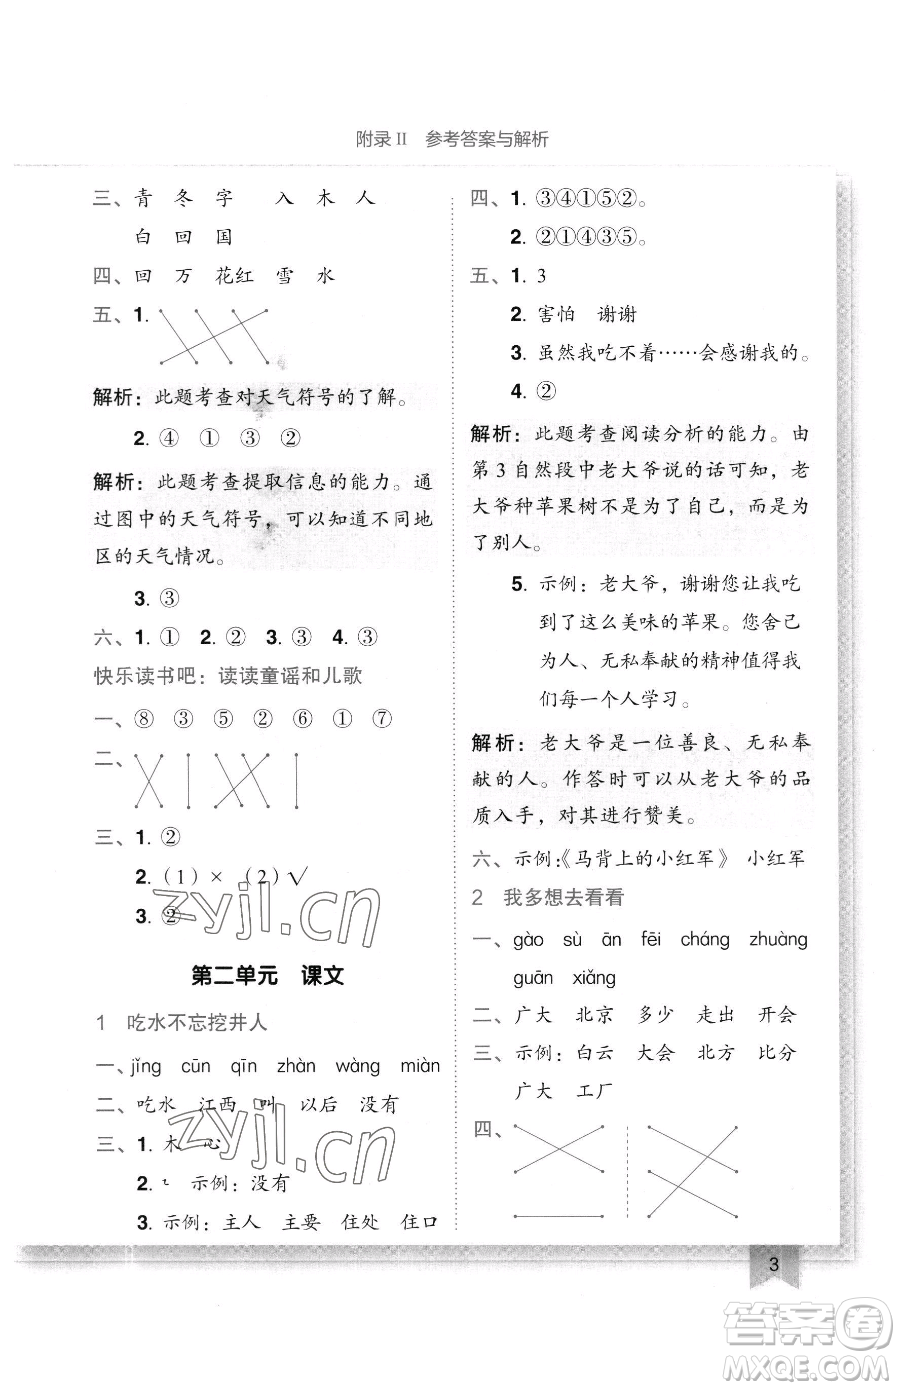 附录 II 参考答案与解析
三、青 冬 字 入 木 人
白 回 国
四、回 万 花红 雪 水
五、1.
解析：此题考查对天气符号的了解。
2. ④ ① ③ ②
解析：此题考查提取信息的能力。通
过图中的天气符号，可以知道不同地
区的天气情况。
3. ③
六、1. ① 2. ② 3. ③ 4. ③
快乐读书吧：读读童谣和儿歌
一、⑧ ③ ⑤ ② ⑥ ① ⑦
二、
三、1. ②
2.（1）× （2）√
3. ②
第二单元 课文
1 吃水不忘挖井人
一、jǐng cūn qīn zhàn wàng miàn
二、吃水 江西 叫 以后 没有
三、1. 木 心
2. ㇀ 示例：没有
3. 示例：主人 主要 住处 住口
四、1. ③④①⑤②。
2. ②①④③⑤。
五、1. 3
2. 害怕 谢谢
3. 虽然我吃不着……会感谢我的。
4. ②
解析：此题考查阅读分析的能力。由
第 3 自然段中老大爷说的话可知，老
大爷种苹果树不是为了自己，而是为
了别人。
5. 示例：老大爷，谢谢您让我吃
到了这么美味的苹果。您舍己
为人、无私奉献的精神值得我
们每一个人学习。
解析：老大爷是一位善良、无私奉
献的人。作答时可以从老大爷的品
质入手，对其进行赞美。
六、示例：《马背上的小红军》 小红军
2 我多想去看看
一、gào sù ān fēi cháng zhuàng
guān xiǎng
二、广大 北京 多少 走出 开会
三、示例：白云 大会 北方 比分
广大 工厂
四、
3
zyjl.cn
zyjl.cn
答案圈
MXQE.COM